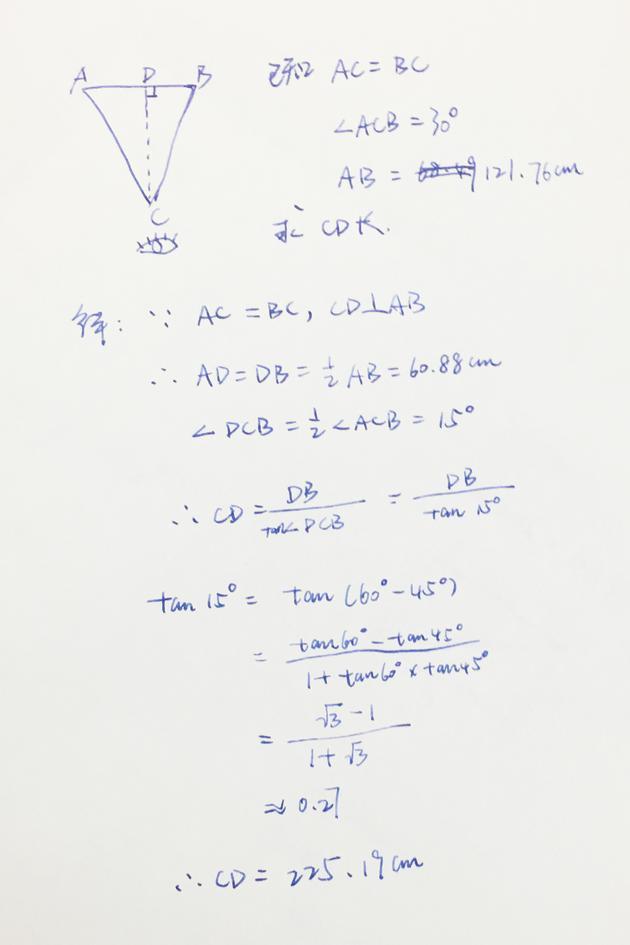 A D B
C
已知 AC = BC
∠ACB = 30°
AB = 121.76cm
求 CD长.
解: ∵ AC = BC, CD⊥AB
∴ AD = DB = 1/2 AB = 60.88cm
∠DCB = 1/2 ∠ACB = 15°
∴ CD = DB / tan∠DCB = DB / tan 15°
tan 15° = tan (60° - 45°)
= tan60° - tan45° / 1 + tan60° × tan45°
= √3 - 1 / 1 + √3
≈ 0.27
∴ CD = 225.19cm